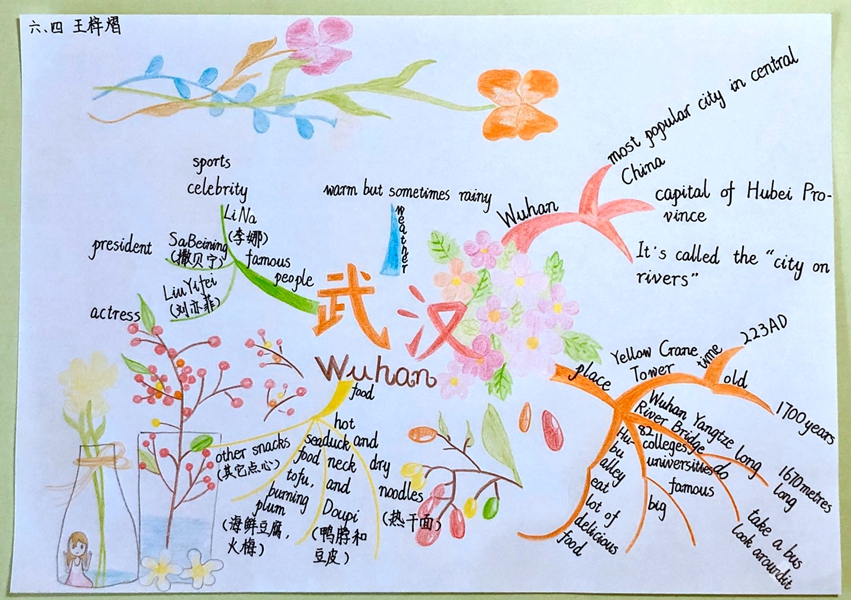 六、四 王梓熠
most popular city in central
China
capital of Hubei Pro-
vince
It's called the "city on
rivers"
Wuhan
warm but sometimes rainy
weather
sports
celebrity
Li Na
(李娜)
president
SaBeining
(撒贝宁)
actress
LiuYifei
(刘亦菲)
famous
people
武汉
Wuhan
place
Yellow Crane
Tower
time
223AD
old
1700years
Wuhan Yangtze
River Bridge
long
1670metres
long
do
take a bus
look aroundit
82
colleges
universities
famous
big
Hu
bu
alley
eat
lot of
delicious
food
food
hot
and
dry
noodles
(热干面)
duck
neck
and
Doupi
(鸭脖和
豆皮)
sea
food
tofu,
burning
plum
(海鲜豆腐,
火梅)
other snacks
(其它点心)